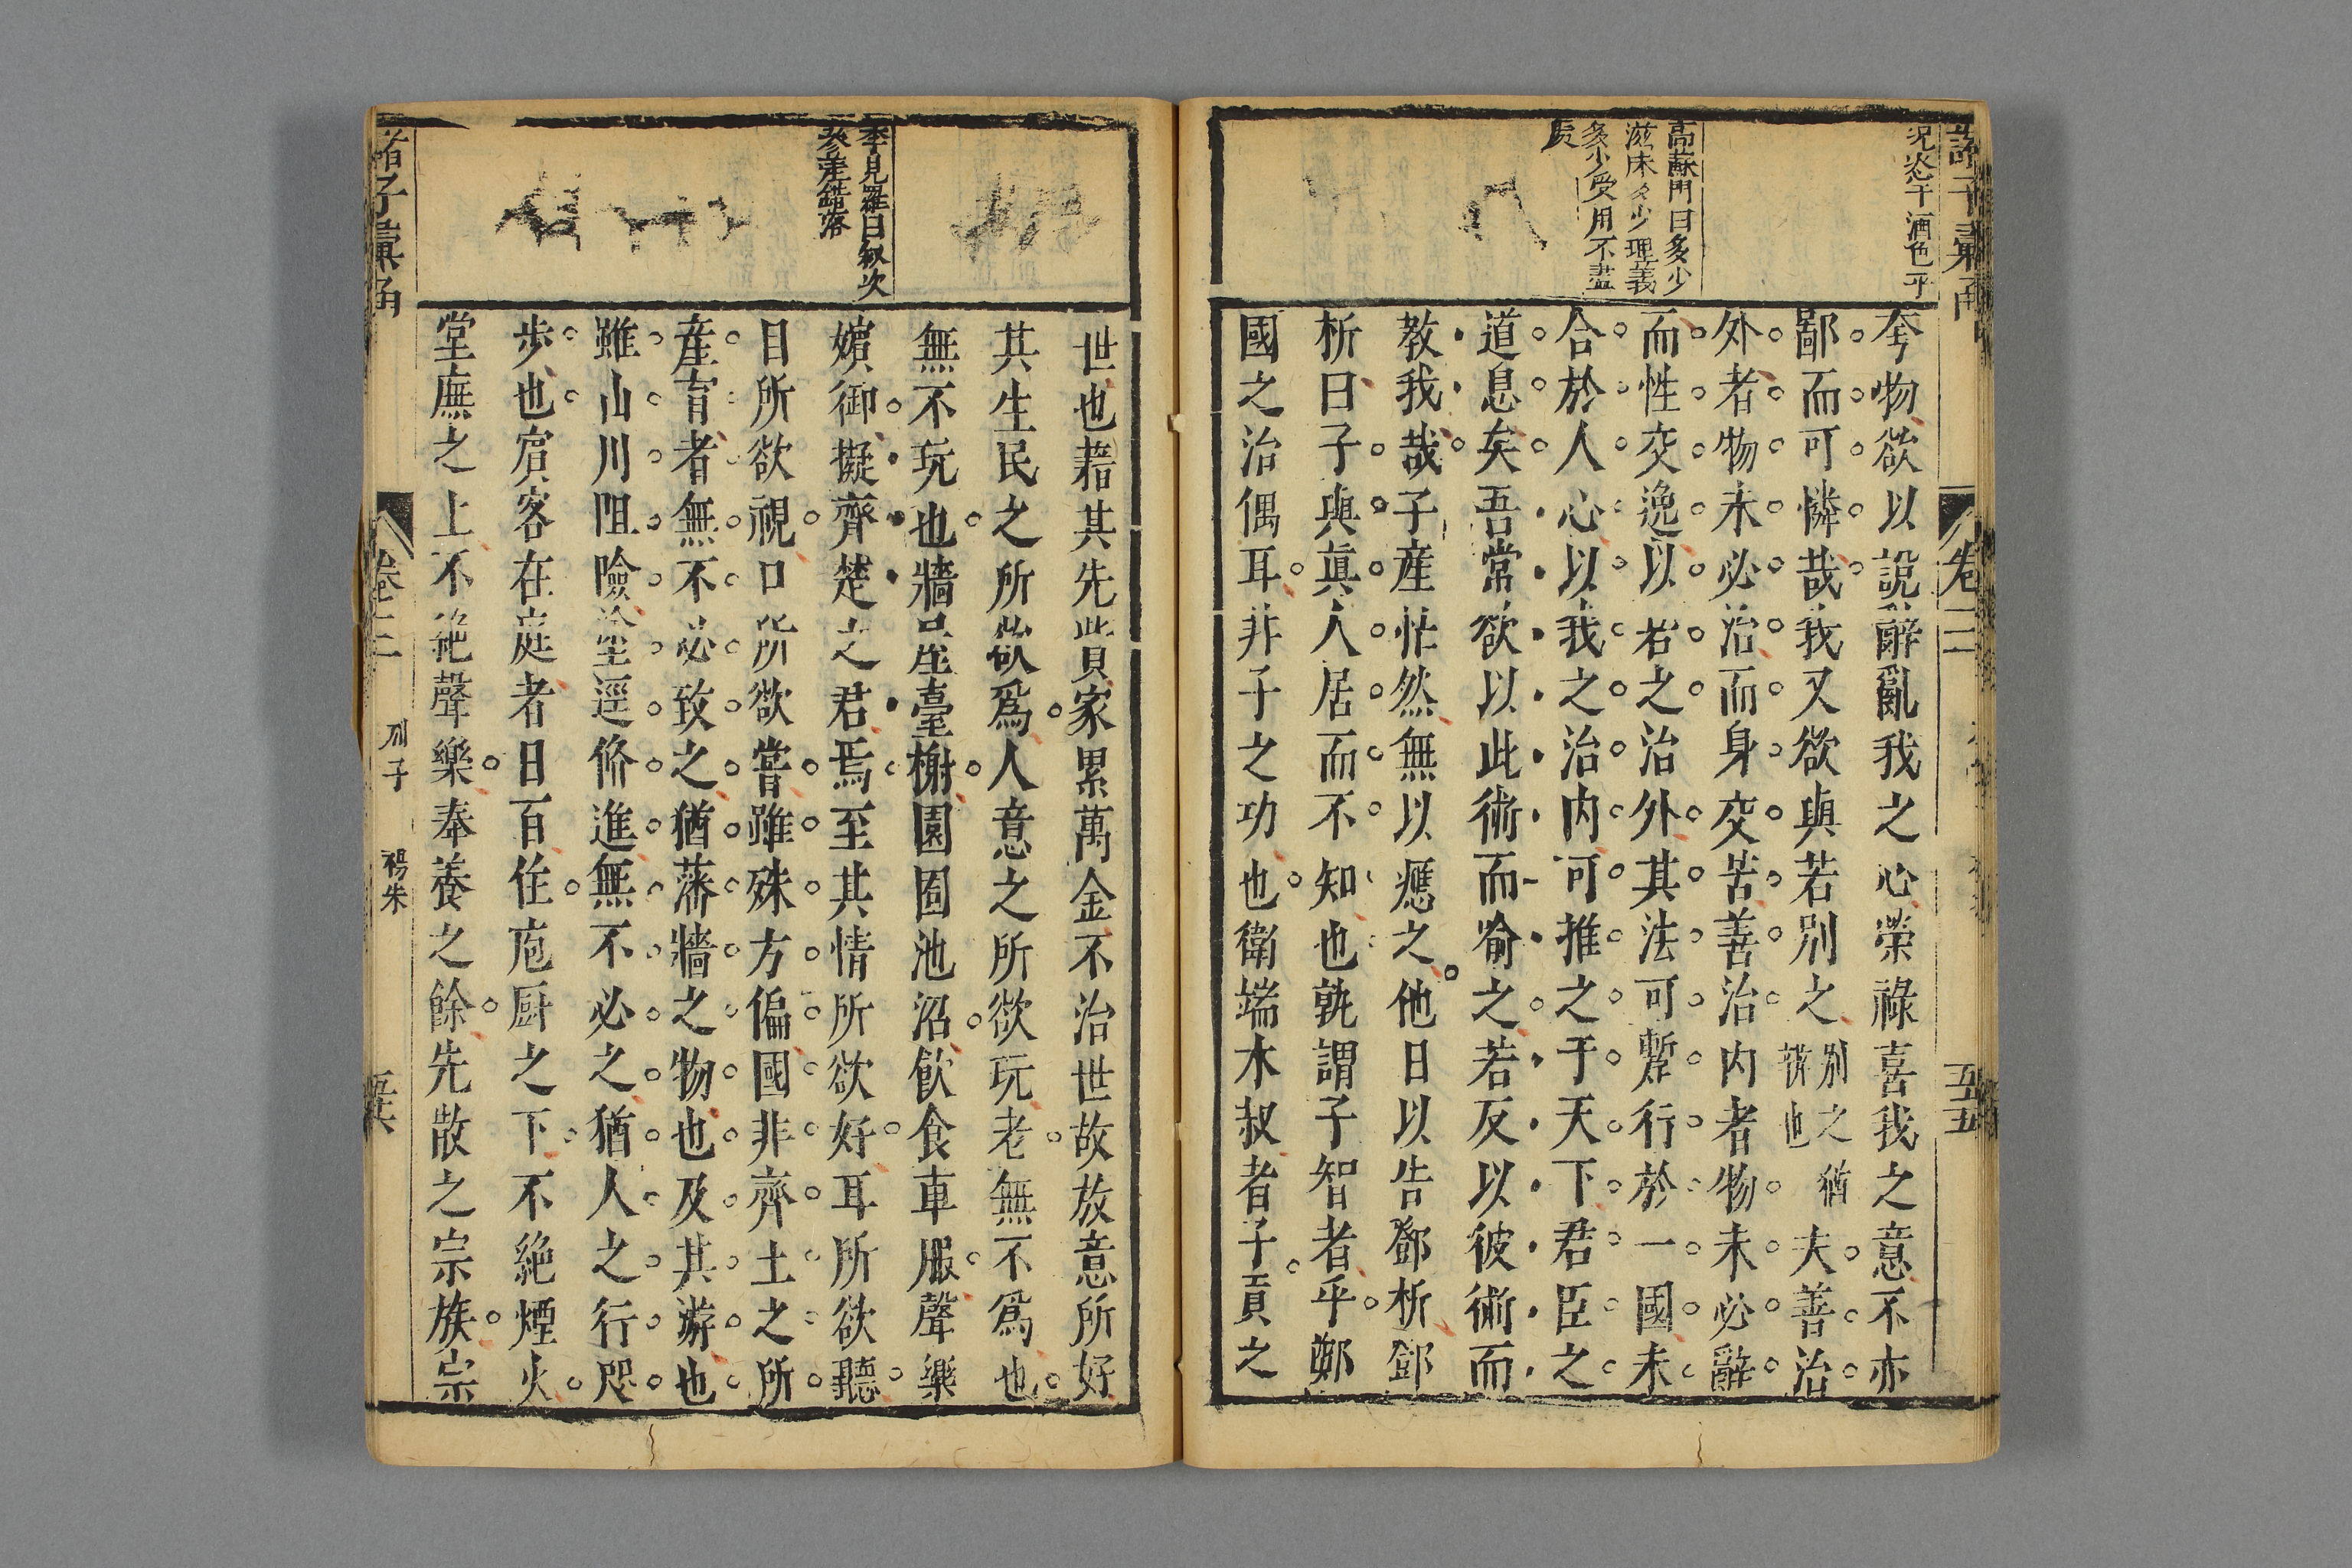 諸子彙函
卷二
五五
況恣于酒色乎
高蘇門曰多少
滋味多少理義
多少受用不盡
處
夸物欲以說辭亂我之心榮祿喜我之意不亦
鄙而可憐哉我又欲與若別之別之猶辨也夫善治
外者物未必治而身交苦善治内者物未必辭
而性交逸以若之治外其法可暫行於一國未
合於人心以我之治内可推之于天下君臣之
道息矣吾常欲以此術而喻之若反以彼術而
教我哉子産忙然無以應之他日以告鄧析鄧
析曰子與真人居而不知也孰謂子智者乎鄭
國之治偶耳非子之功也衛端木叔者子貢之
李見羅曰叙次
參差錯落
世也藉其先貲家累萬金不治世故放意所好
其生民之所欲為人意之所欲玩老無不為也
無不玩也牆屋臺榭園囿池沼飲食車服聲樂
嬪御擬齊楚之君焉至其情所欲好耳所欲聽
目所欲視口所欲嘗雖殊方偏國非齊土之所
産育者無不必致之猶藩牆之物也及其游也
雖山川阻險塗逕脩進無不必之猶人之行咫
步也賔客在庭者日百住庖厨之下不絶煙火
堂廡之上不絶聲樂奉養之餘先散之宗族宗
諸子彙函
卷二
列子
楊朱